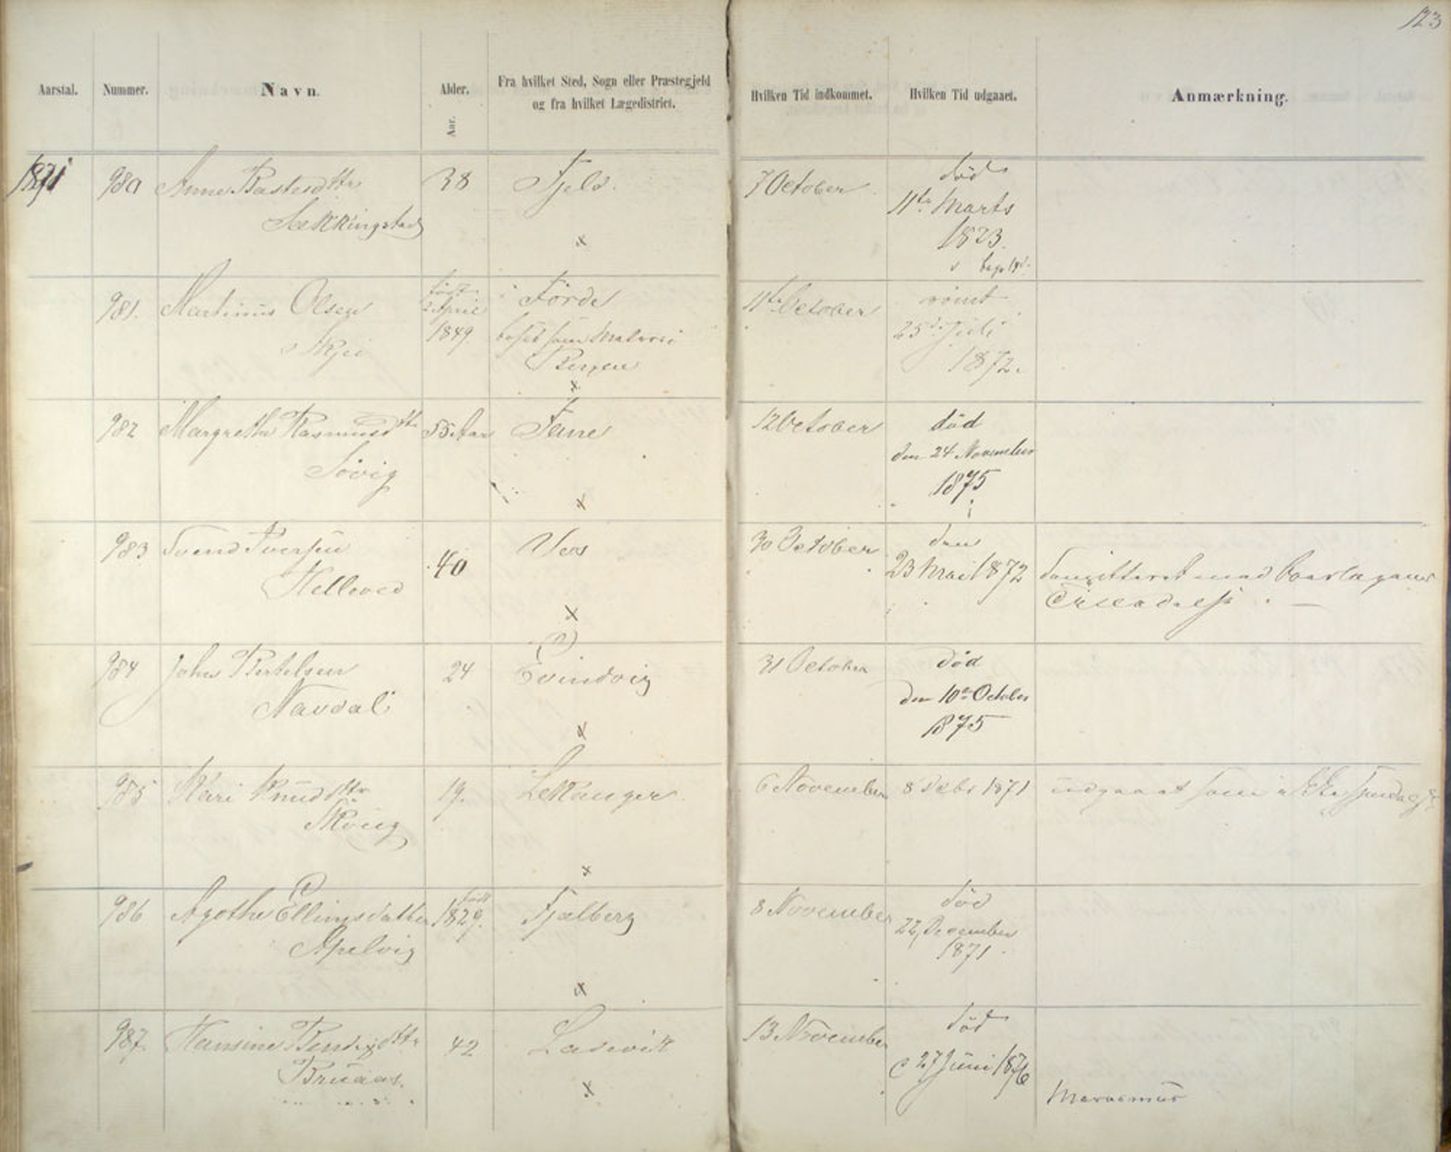 123
Aarstal. Nummer. Navn. Alder. Fra hvilket Sted, Sogn eller Præstegjeld Hvilken Tid indkommet. Hvilken Tid udgaaet. Anmærkning.
og fra hvilket Lægedistrict.
Aar.
1871 980 Anne 38 Fjeld. 7 October død
Sekkingstad 11te Marts
x 1873.
981. Martinus Olsen født Førde 11te October rømt
April 25de Juli
Skjei 1849 1872.
Bergen
x
982 Margrethe Rasmusdttr 55 Aar Fane 12 October død
Søvig den 24 November
x 1875
983 Svend Iversen 40 Vos 30 October den
Helleved 23 Mai 1872
x
984 Johs Bertelsen 24 Evindvig 31 October død
Navdal den 10de October
x 1875
985 Kari Knudsdttr 19. Lekanger 6 November 8 Debr 1871 udgaaet som ikke spedalsk
Skoug
x
986 Agothe Ellingsdatter født Fjelberg 8 November død
1829. 22 December
Apelvig 1871
x
987. Hansine 42 Ladevik 13 November død
Bruaas. 27 Juni 1876
x Marasmus